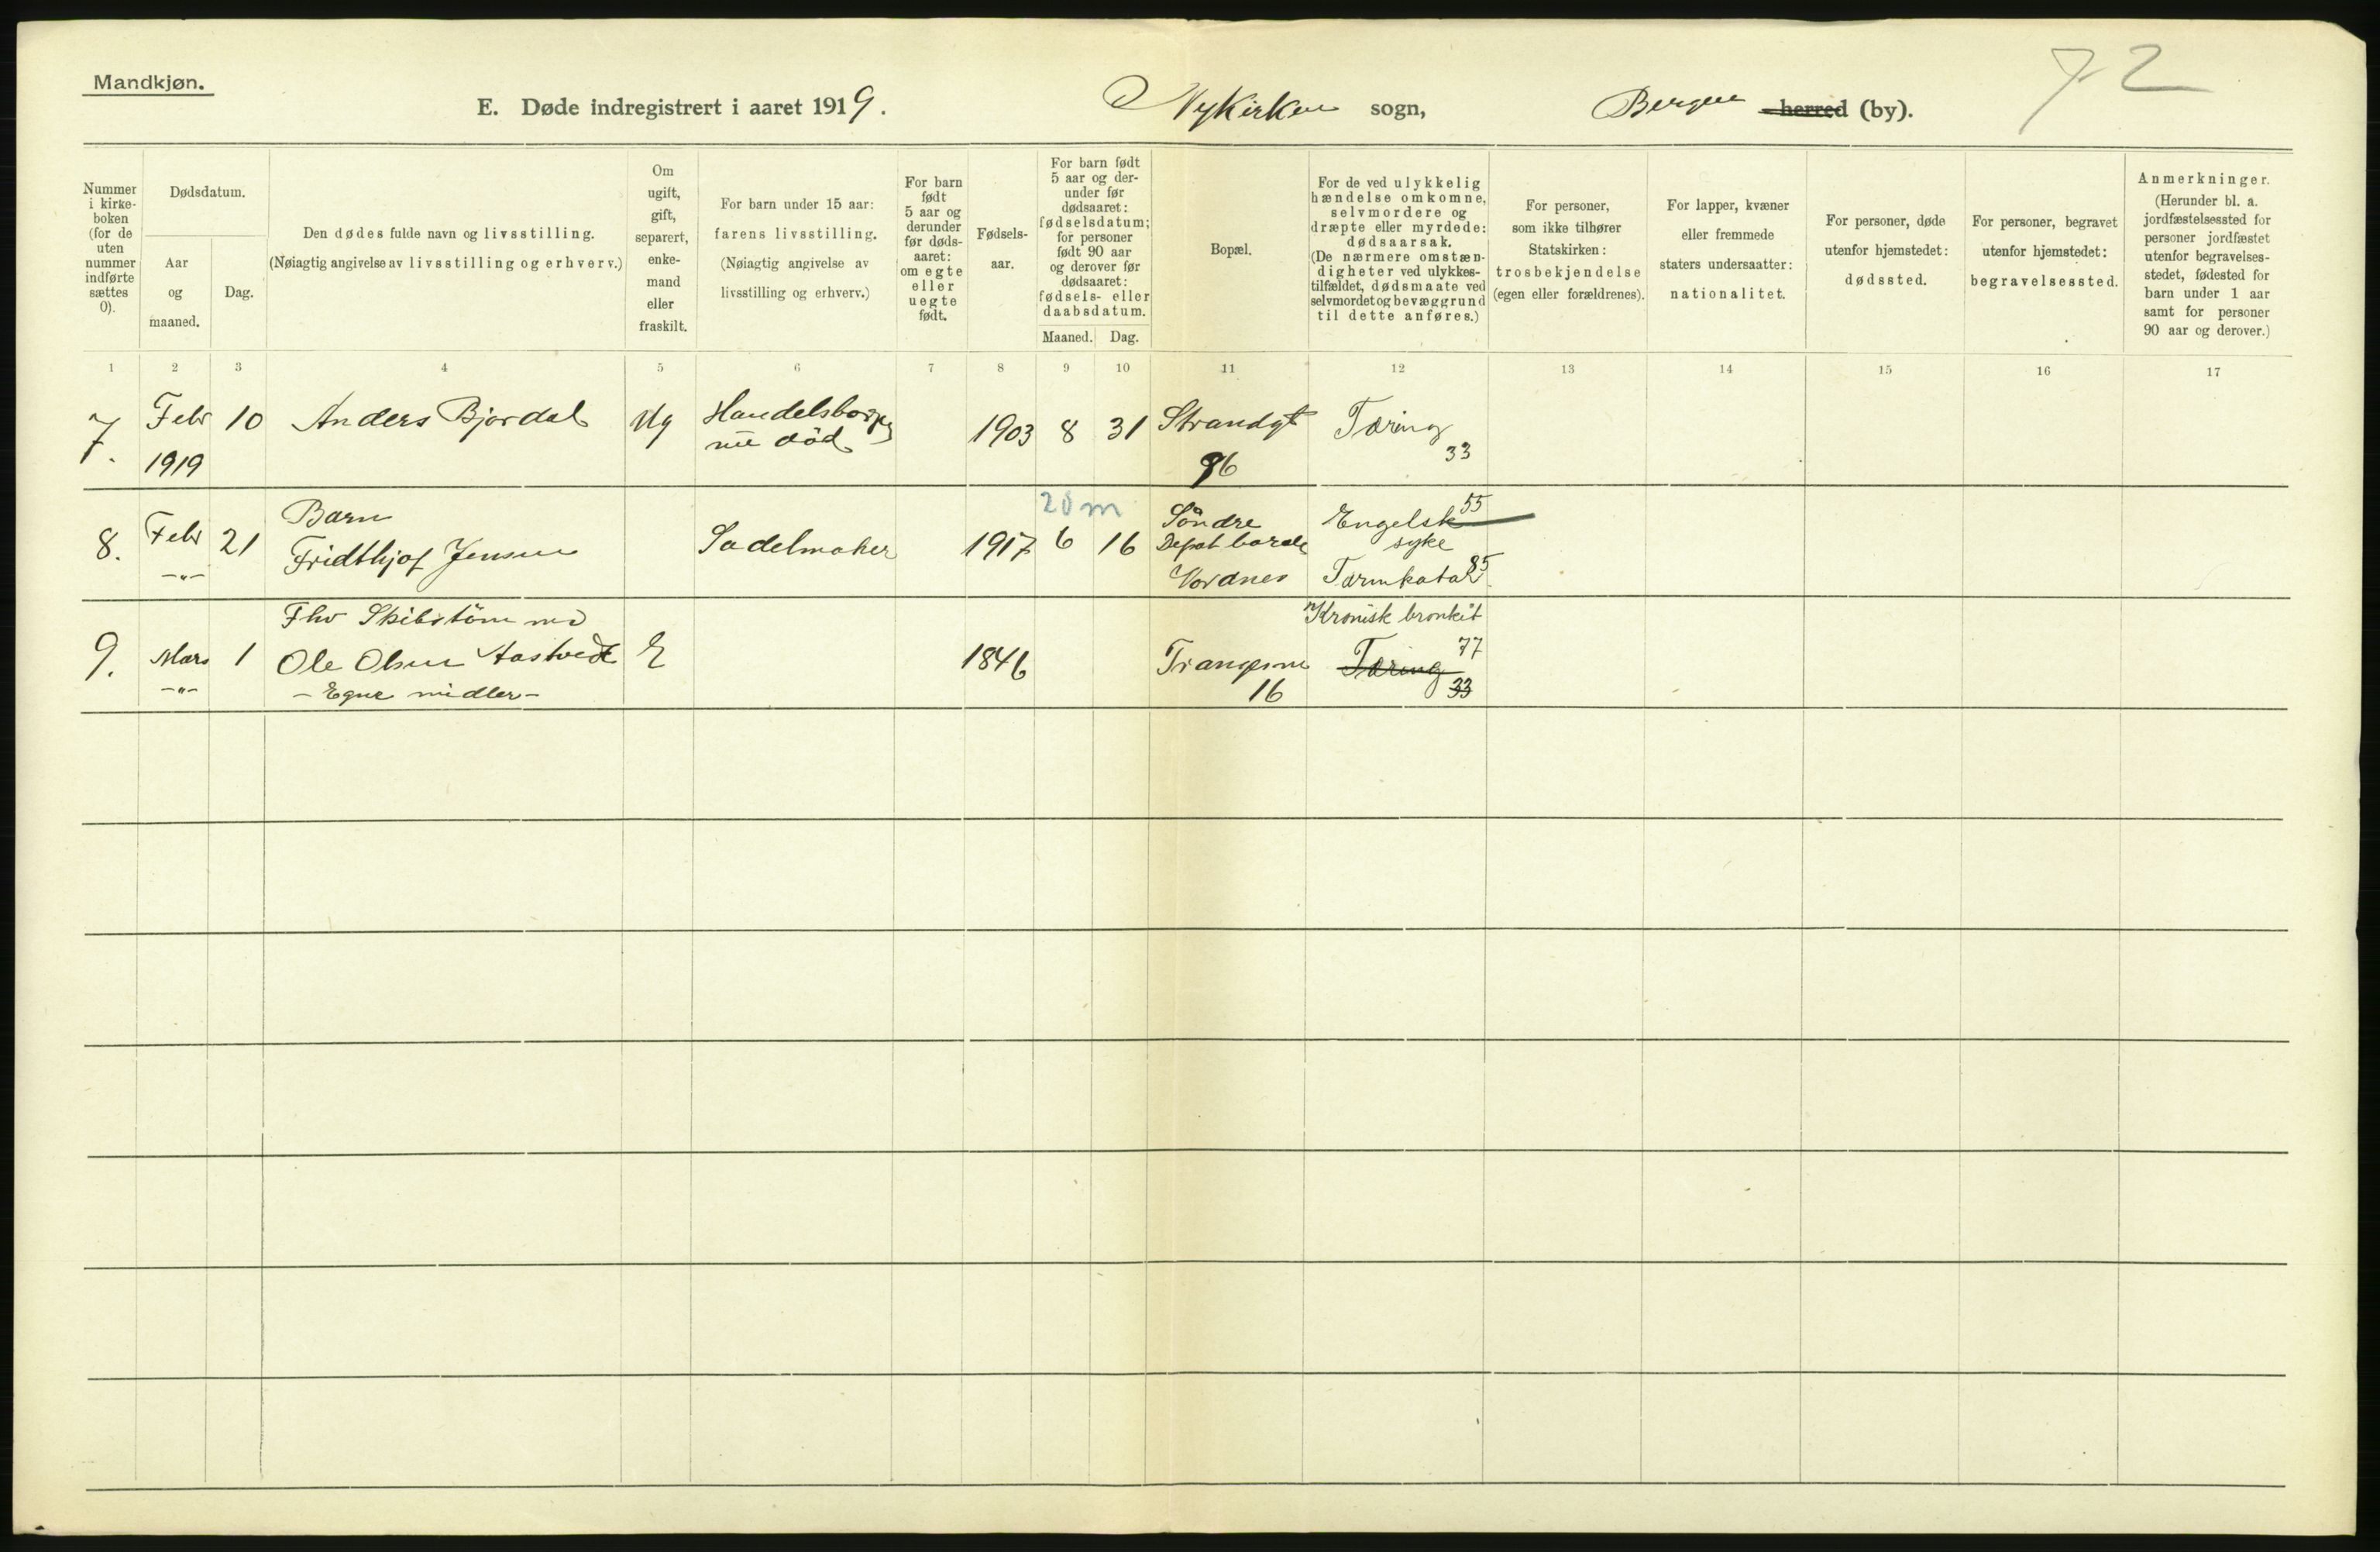 Mandkjøn.
E. Døde indregistrert i aaret 1919. Nykirken sogn, Bergen herred (by).
72
Nummer i kirke-boken (for de uten nummer indførte sættes 0).
Dødsdatum.
Aar og maaned.
Dag.
Den dødes fulde navn og livsstilling.
(Nøiagtig angivelse av livsstilling og erhverv.)
Om ugift, gift, separert, enke-mand eller fraskilt.
For barn under 15 aar:
farens livsstilling.
(Nøiagtig angivelse av
livsstilling og erhverv.)
For barn født 5 aar og derunder før døds-aaret: om egte eller uegte født.
Fødsels-aar.
For barn født 5 aar og der-under før dødsaaret: fødselsdatum; for personer født 90 aar og derover før dødsaaret: fødsels- eller daabsdatum.
Maaned. Dag.
Bopæl.
For de ved ulykkelig hændelse omkomne, selvmordere og dræpte eller myrdede: dødsaarsak.
(De nærmere omstæn-digheter ved ulykkes-tilfældet, dødsmaate ved selvmordet og bevæggrund til dette anføres.)
For personer, som ikke tilhører Statskirken: trosbekjendelse (egen eller forældrenes).
For lapper, kvæner eller fremmede staters undersaatter: nationalitet.
For personer, døde utenfor hjemstedet: dødssted.
For personer, begravet utenfor hjemstedet: begravelsessted.
Anmerkninger.
(Herunder bl. a. jordfæstelsessted for personer jordfæstet utenfor begravelses-stedet, fødested for barn under 1 aar samt for personer 90 aar og derover.)
1 2 3 4 5 6 7 8 9 10 11 12 13 14 15 16 17
7. Febr 1919 10 Anders Bjordal Ug Handelsborger nu død 1903 8 31 Strandgt 96 Tæring 33
20 m
8. Febr -"- 21 Barn Fridthjof Jensen Sadelmaker 1917 6 16 Söndre Nordnes Engelsk syke 55 Tarmkatar 85
9. Mars -"- 1 Fhv Skibstömmerm Ole Olsen Aastvedt - Egne midler - E 1846 16 Kronisk bronkit 77 Tæring 33